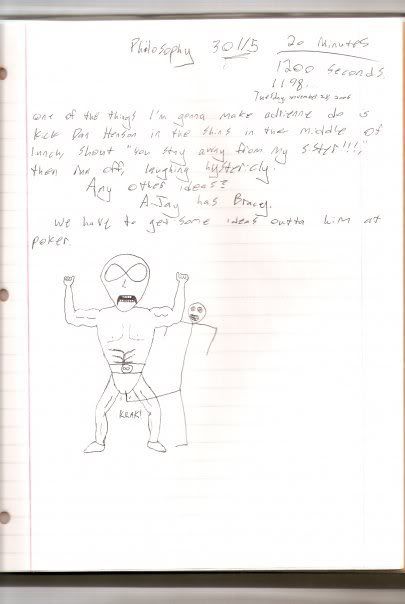 Philosophy 301/5 20 Minutes
1200 seconds.
1198.
Tuesday, november 28, 2006
one of the things I'm gonna make adrienne do is
kick Dan Henson in the shins in the middle of
lunch, shout "you stay away from my sister!!!,"
then run off, laughing hystericly.
Any other ideas?
A-Jay has Bracey.
we have to get some ideas outta him at
poker.
KRAK!